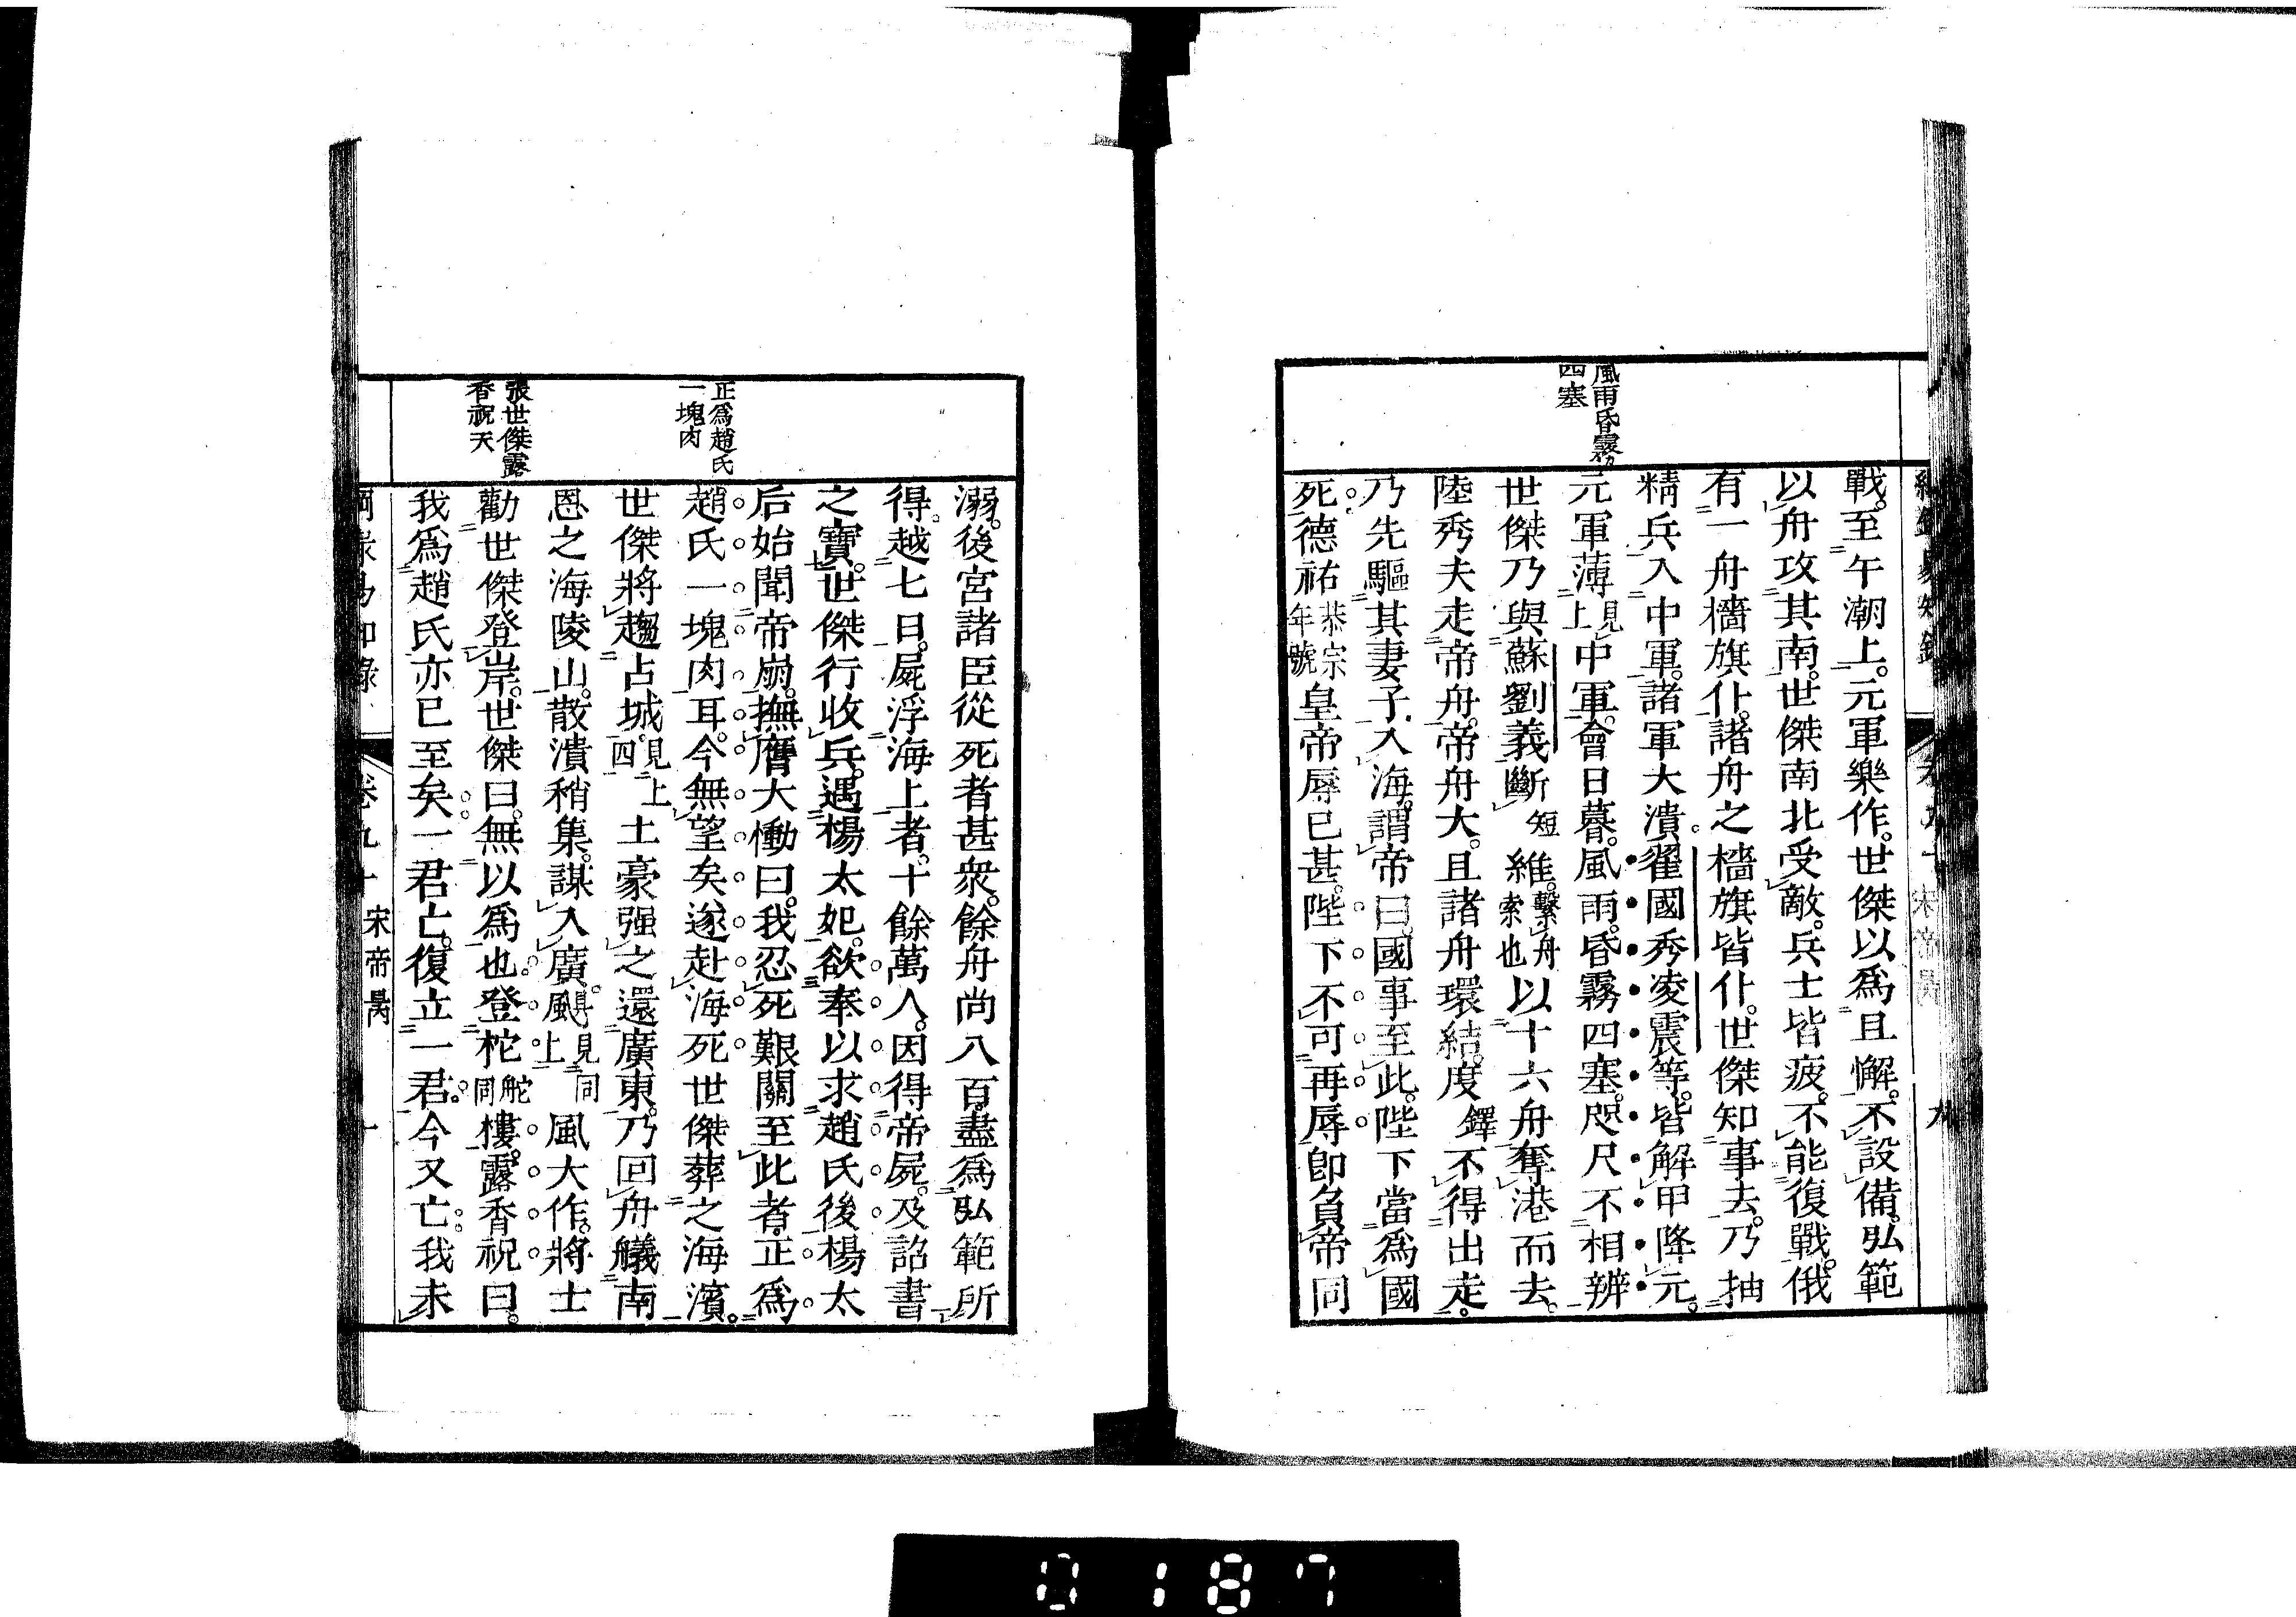 風雨昏霧
四塞
戰。至午潮上。元軍樂作。世傑以爲且懈。不設備。弘範
以舟攻其南。世傑南北受敵。兵士皆疲。不能復戰。俄
有一舟檣旗仆。諸舟之檣旗皆仆。世傑知事去。乃抽
精兵入中軍。諸軍大潰。翟國秀凌震等。皆解甲降元。
元軍薄見上中軍。會日暮。風雨。昏霧四塞。咫尺不相辨
世傑乃與蘇劉義斷短維。繫舟索也以十六舟奪港而去。
陸秀夫走帝舟。帝舟大。且諸舟環結。度鐸不得出走。
乃先驅其妻子入海。謂帝曰。國事至此。陛下當爲國
死。德祐恭宗年號皇帝辱已甚。陛下不可再辱卽負帝同
正爲趙氏
一塊肉
張世傑露
香祝天
溺。後宮諸臣從死者甚衆。餘舟尚八百。盡爲弘範所
得。越七日。屍浮海上者。十餘萬人。因得帝屍。及詔書
之寶。世傑行收兵。遇楊太妃。欲奉以求趙氏後楊太
后始聞帝崩。撫膺大慟曰。我忍死艱關至此者。正爲
趙氏一塊肉耳。今無望矣。遂赴海死世傑葬之海濱。
世傑將趨占城。見上四土豪强之還廣東。乃回舟艤南
恩之海陵山。散潰稍集。謀入廣。颶見上同風大作。將士
勸世傑登岸。世傑曰。無以爲也。登柁舵同樓。露香祝曰。
我爲趙氏亦已至矣。一君亡。復立一君。今又亡。我未
卷九十 宋帝昺
0187